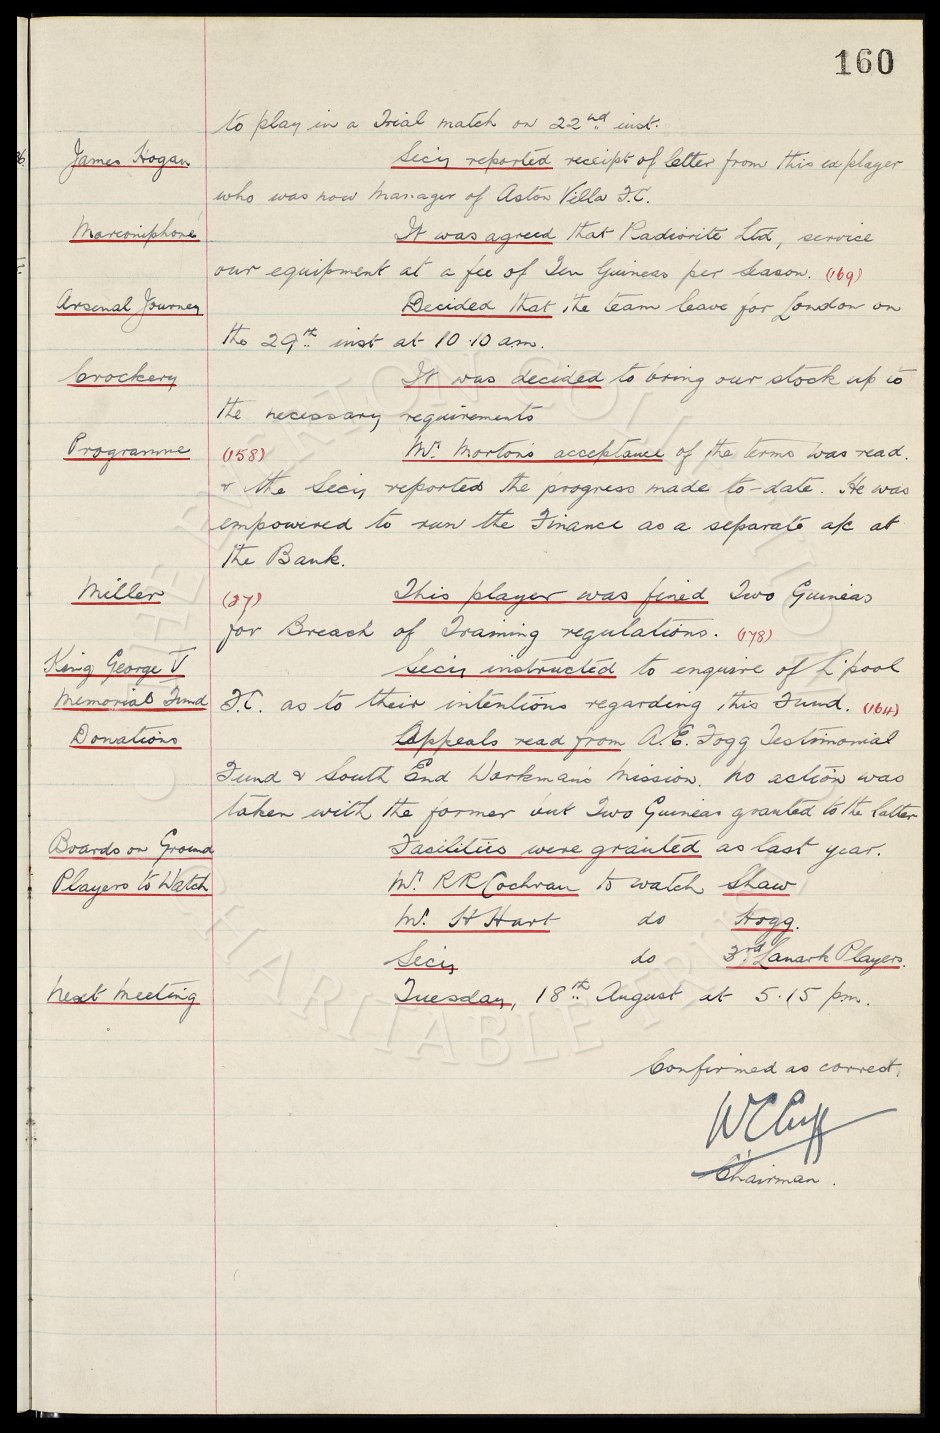 160
to play in a Trial match on 22nd inst.
James Hogan Secy reported receipt of letter from this ex player
who was now Manager of Aston Villa F.C.
Marconiphone It was agreed that Radiorite Ltd, service
our equipment at a fee of Ten Guineas per Season. (169)
Arsenal Journey Decided that the team leave for London on
the 29th inst at 10.10 am.
Crockery It was decided to bring our stock up to
the necessary requirements
Programme (158) Mr. Morton's acceptance of the terms was read.
& the Secy reported the progress made to-date. He was
empowered to run the Finance as a separate a/c at
the Bank.
Miller (27) This player was fined Two Guineas
for Breach of Training regulations. (178)
King George V Secy instructed to enquire of L'pool
Memorial Fund F.C. as to their intentions regarding this Fund. (164)
Donations Appeals read from A.E. Fogg Testimonial
Fund & South End Workman's Mission. No action was
taken with the former but Two Guineas granted to the latter
Boards on Ground Facilities were granted as last year.
Players to Watch Mr. RR Cochran to watch Shaw
Mr. H Hart do Hogg.
Secy do 3rd Lanark Players.
Next Meeting Tuesday, 18th August at 5.15 pm.
Confirmed as correct,
WC Cuff
Chairman.
EVERTON COLLECTION
CHARITABLE TRUST